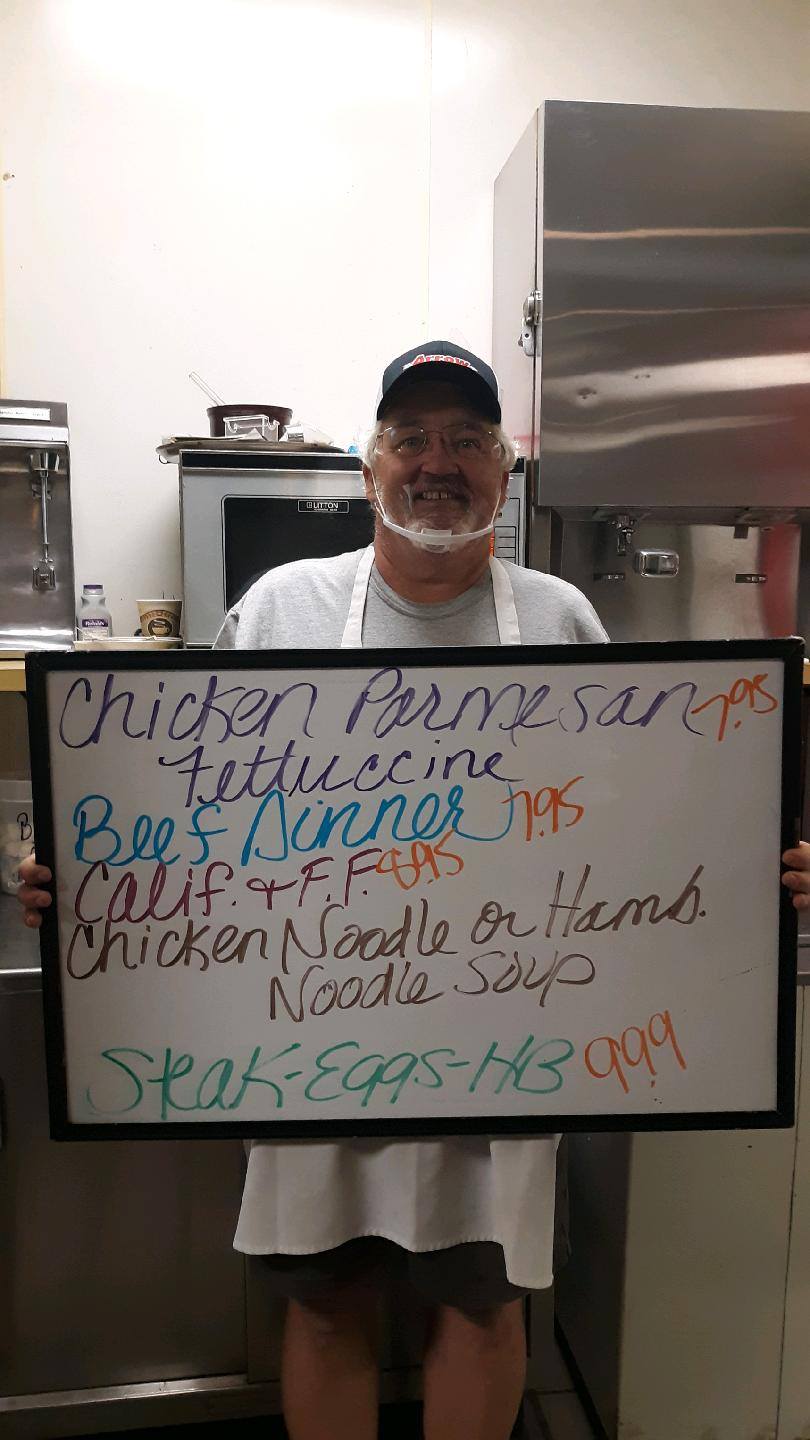 Arrow
LITTON
Chicken Parmesan 7.95
Fettuccine
Beef Dinner 7.95
Calif. & F.F. 8.95
Chicken Noodle or Hamb.
Noodle Soup
Steak-Eggs-HB 9.99